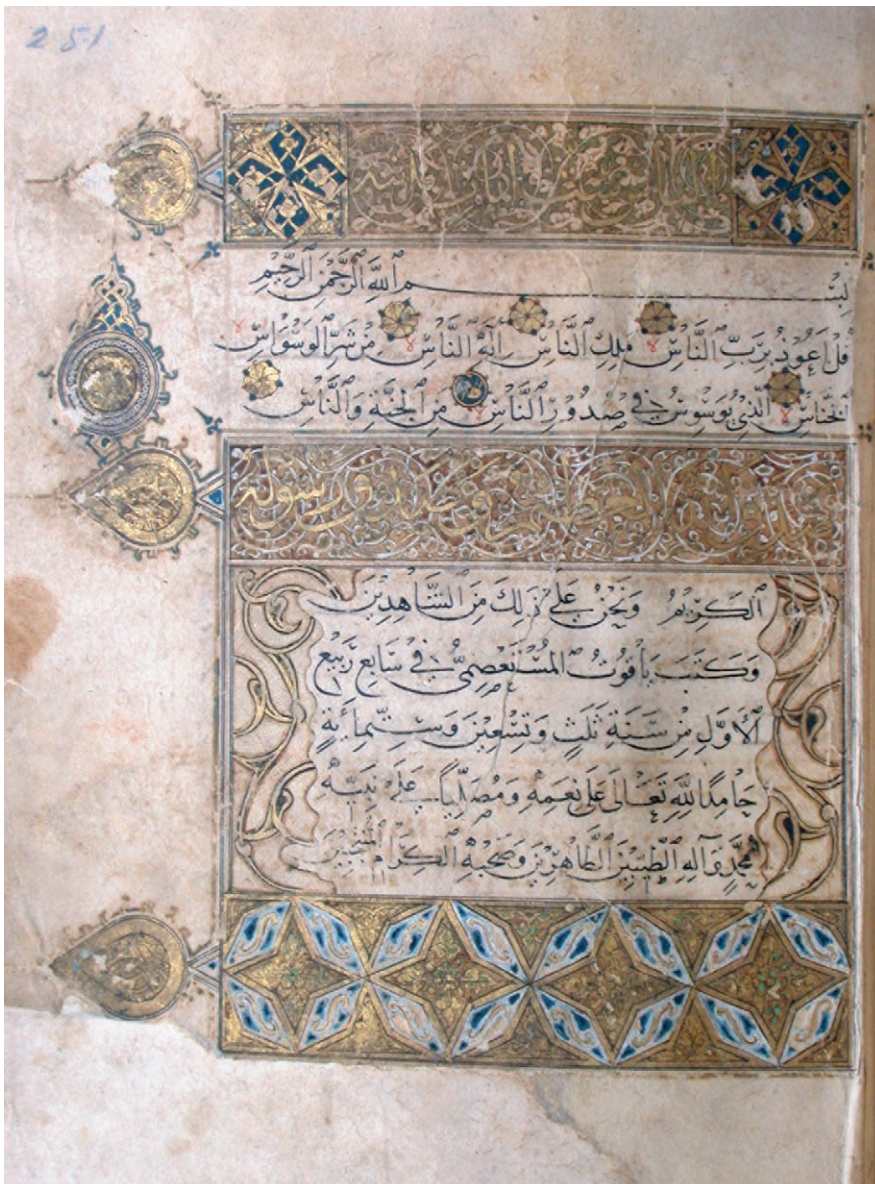 251
بِسْمِ ٱللَّهِ ٱلرَّحْمَٰنِ ٱلرَّحِيمِ
قُلْ أَعُوذُ بِرَبِّ ٱلنَّاسِ مَلِكِ ٱلنَّاسِ إِلَهِ ٱلنَّاسِ مِنْ شَرِّ ٱلْوَسْوَاسِ
ٱلْخَنَّاسِ ٱلَّذِي يُوَسْوِسُ فِي صُدُورِ ٱلنَّاسِ مِنَ ٱلْجِنَّةِ وَٱلنَّاسِ
صدق الله العظيم وصدق رسوله
ٱلْكَرِيمُ وَنَحْنُ عَلَى ذَلِكَ مِنَ ٱلشَّاهِدِينَ
وَكَتَبَ يَاقُوتُ ٱلْمُسْتَعْصِمِيُّ فِي سَابِعِ رَبِيعٍ
ٱلْأَوَّلِ مِنْ سَنَةِ ثَلَثٍ وَتِسْعِينَ وَسِتِّمِائَةٍ
حَامِدًا لِلَّهِ تَعَالَى عَلَى نِعَمِهِ وَمُصَلِّيًا عَلَى نَبِيِّهِ
مُحَمَّدٍ وَآلِهِ ٱلطَّيِّبِينَ ٱلطَّاهِرِينَ وَصَحْبِهِ ٱلْكِرَامِ ٱلْمُنْتَجَبِينَ